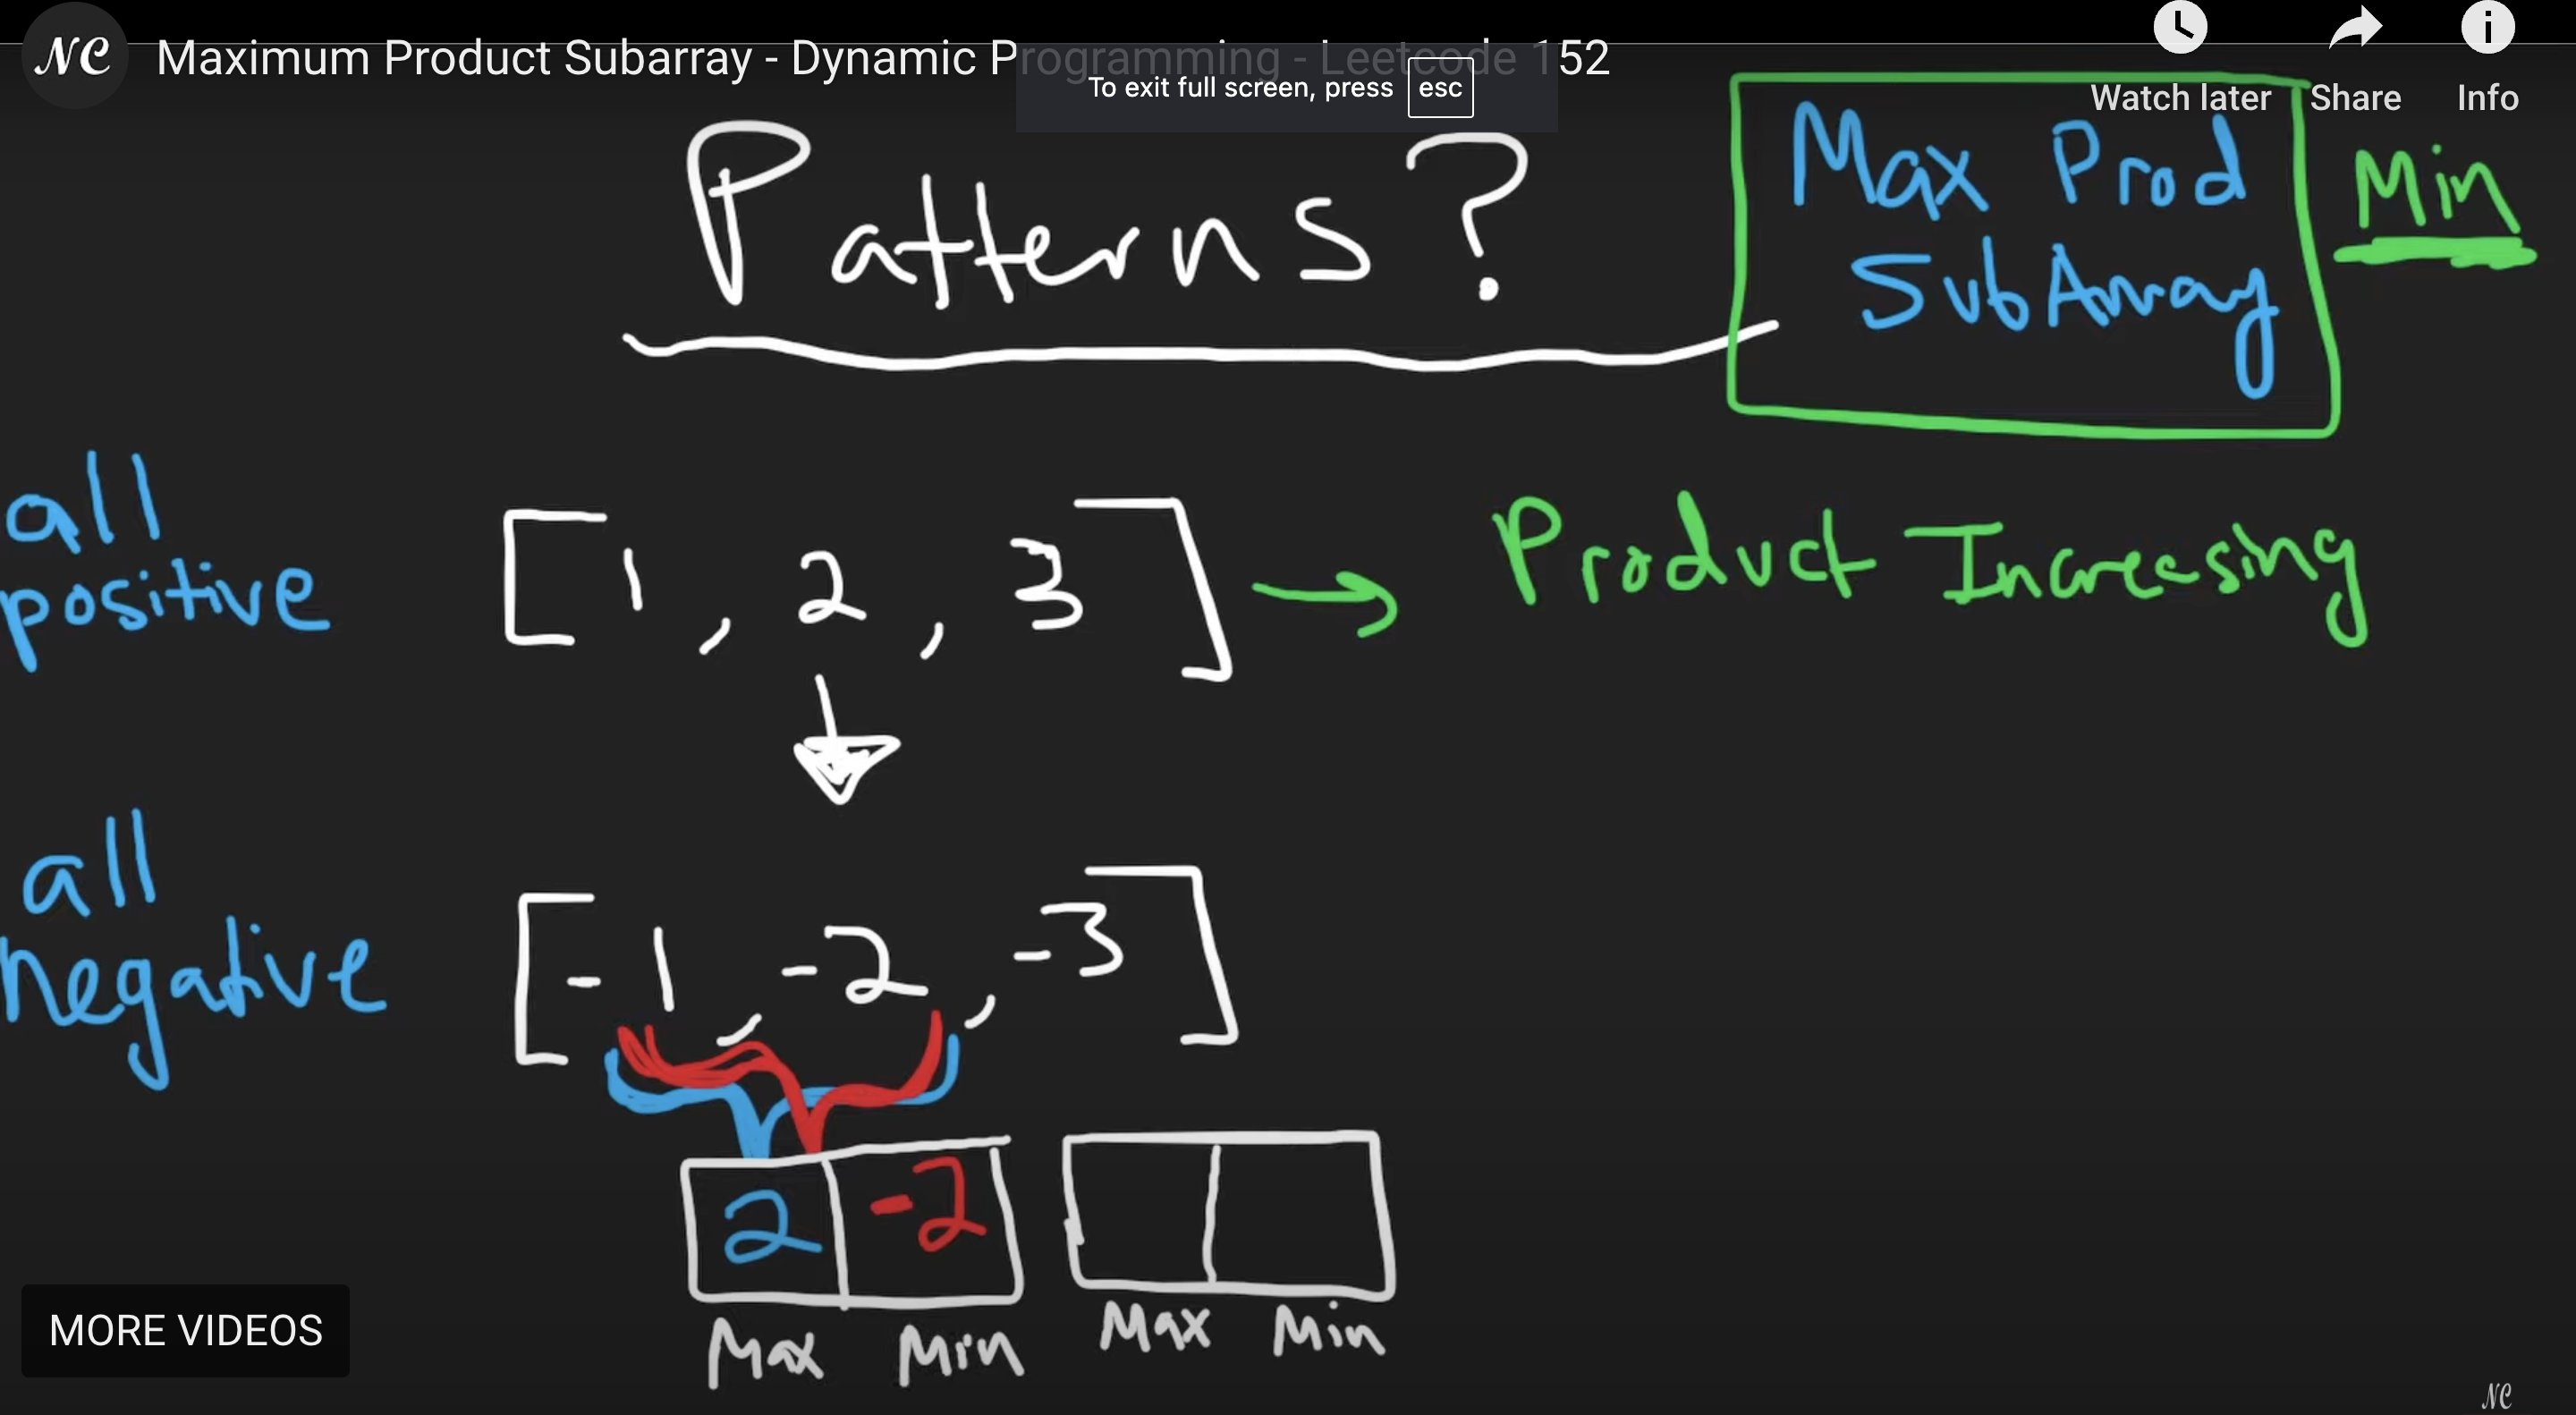 NC Maximum Product Subarray - Dynamic Programming - Leetcode 152
To exit full screen, press esc
Watch later Share Info
Patterns?
Max Prod
SubArray
Min
all
positive
[1, 2, 3] → Product Increasing
all
negative
[-1, -2, -3]
2 -2
Max Min Max Min
MORE VIDEOS
NC